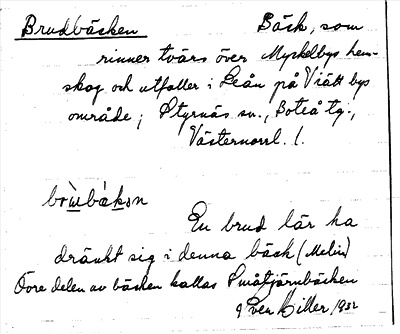 Brudbäcken Bäck, som
rinner tvärs över Myckelbys hem-
skog och utfaller i Leån på Viätt bys
område; Styrnäs sn., Boteå tg.,
Västernorrl. l.
En brud lär ha
dränkt sig i denna bäck (Melin)
Övre delen av bäcken kallas Småtjärnbäcken
Sven Hiller 1932